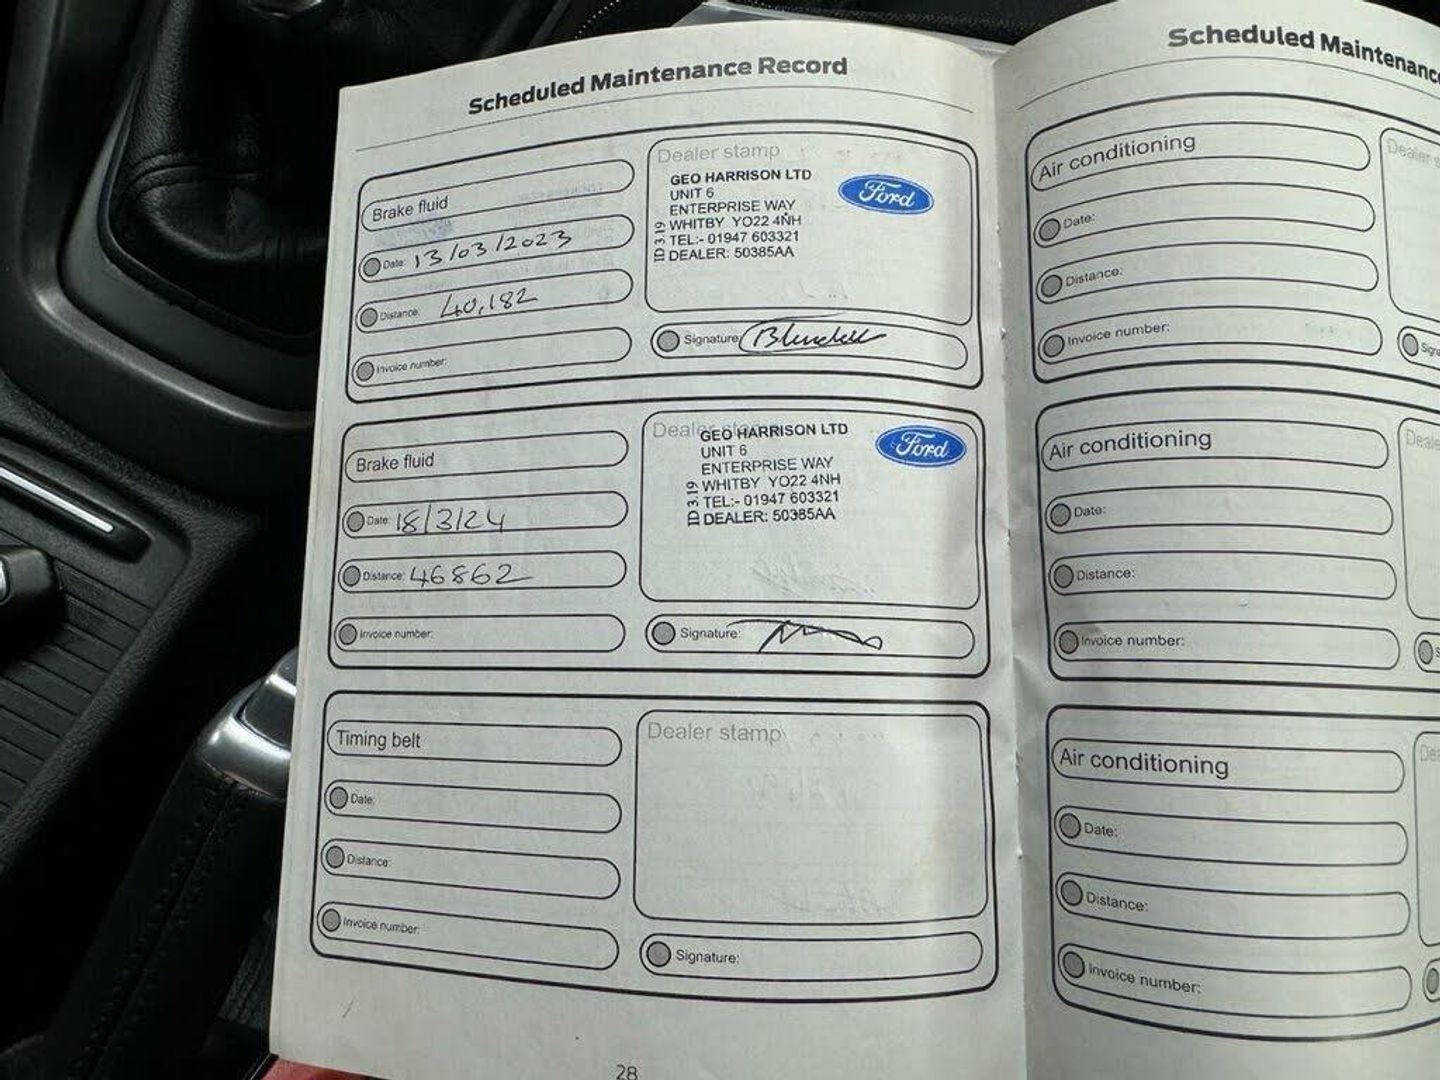 Scheduled Maintenance Record
Brake fluid
Date: 13/03/2023
Distance: 40,182
Invoice number:
Dealer stamp
GEO HARRISON LTD
UNIT 6
ENTERPRISE WAY
WHITBY YO22 4NH
TEL:- 01947 603321
DEALER: 50385AA
ID 3.19
Ford
Signature:
Brake fluid
Date: 18/3/24
Distance: 46862
Invoice number:
Dealer
GEO HARRISON LTD
UNIT 6
ENTERPRISE WAY
WHITBY YO22 4NH
TEL:- 01947 603321
DEALER: 50385AA
ID 3.19
Ford
Signature:
Timing belt
Date:
Distance:
Invoice number:
Dealer stamp
Signature:
28
Scheduled Maintenance
Air conditioning
Date:
Distance:
Invoice number:
Dealer
Air conditioning
Date:
Distance:
Invoice number:
Air conditioning
Date:
Distance:
Invoice number: